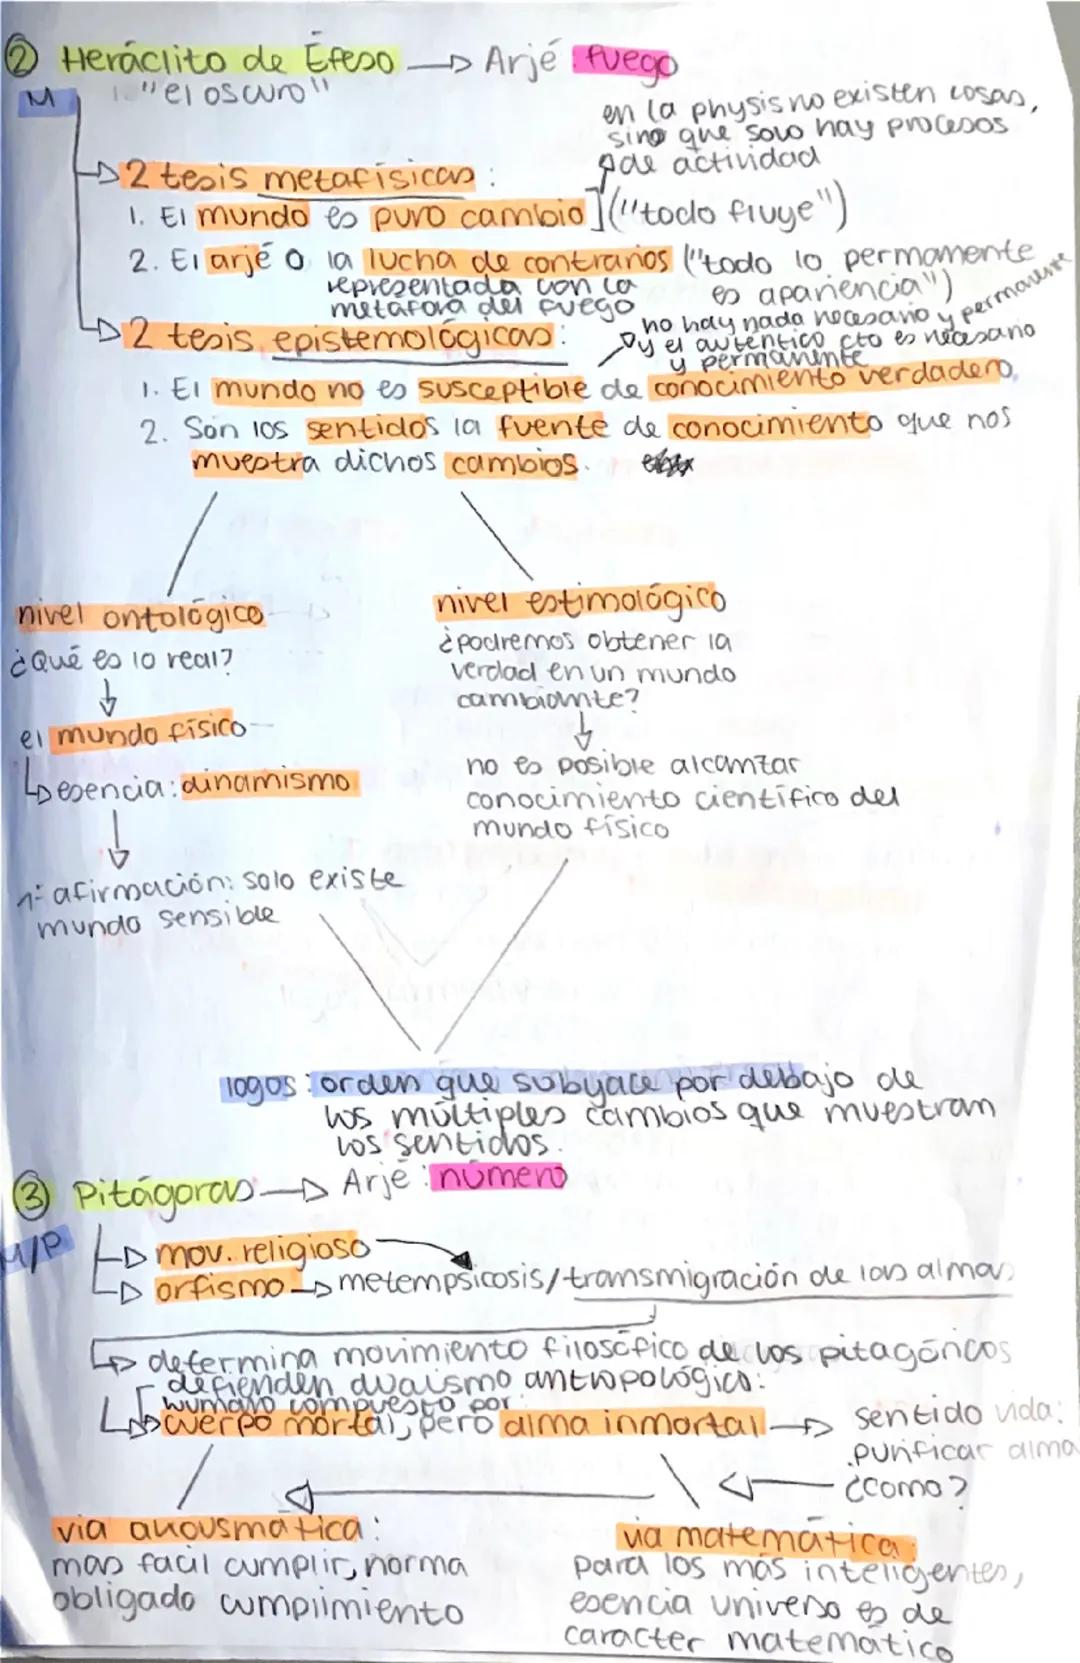 ② Heráclito de Éfeso → Arjé: fuego
M 1. "el oscuro"
en la physis no existen cosas,
sino que solo hay procesos
de actividad
2 tesis metafísicas:
1. El mundo es puro cambio ("todo fluye")
2. El arjé o la lucha de contrarios ("todo lo permamente
representada con la
es apariencia")
metáfora del fuego
no hay nada necesario y permanente
2 tesis epistemológicas:
y el auténtico cto es necesario
y permanente
1. El mundo no es susceptible de conocimiento verdadero,
2. Són los sentidos la fuente de conocimiento que nos
muestra dichos cambios.
nivel ontológico
¿Qué es lo real?
el mundo físico
esencia: dinamismo
afirmación: solo existe
mundo sensible
nivel estimológico
¿podremos obtener la
verdad en un mundo
cambiante?
no es posible alcanzar
conocimiento científico del
mundo físico
logos: orden que subyace por debajo de
los múltiples cambios que muestran
los sentidos.
③ Pitágoras → Arjé: número
M/P
mov. religioso
orfismo → metempsicosis/transmigración de las almas
determina movimiento filosófico de los pitagóricos
defienden dualismo antropológico:
humano compuesto por:
cuerpo mortal, pero alma inmortal → sentido vida:
purificar alma
¿como?
via akousmatica:
mas facil cumplir, norma
obligado cumplimiento
via matemática:
para los más inteligentes,
esencia universo es de
caracter matemático